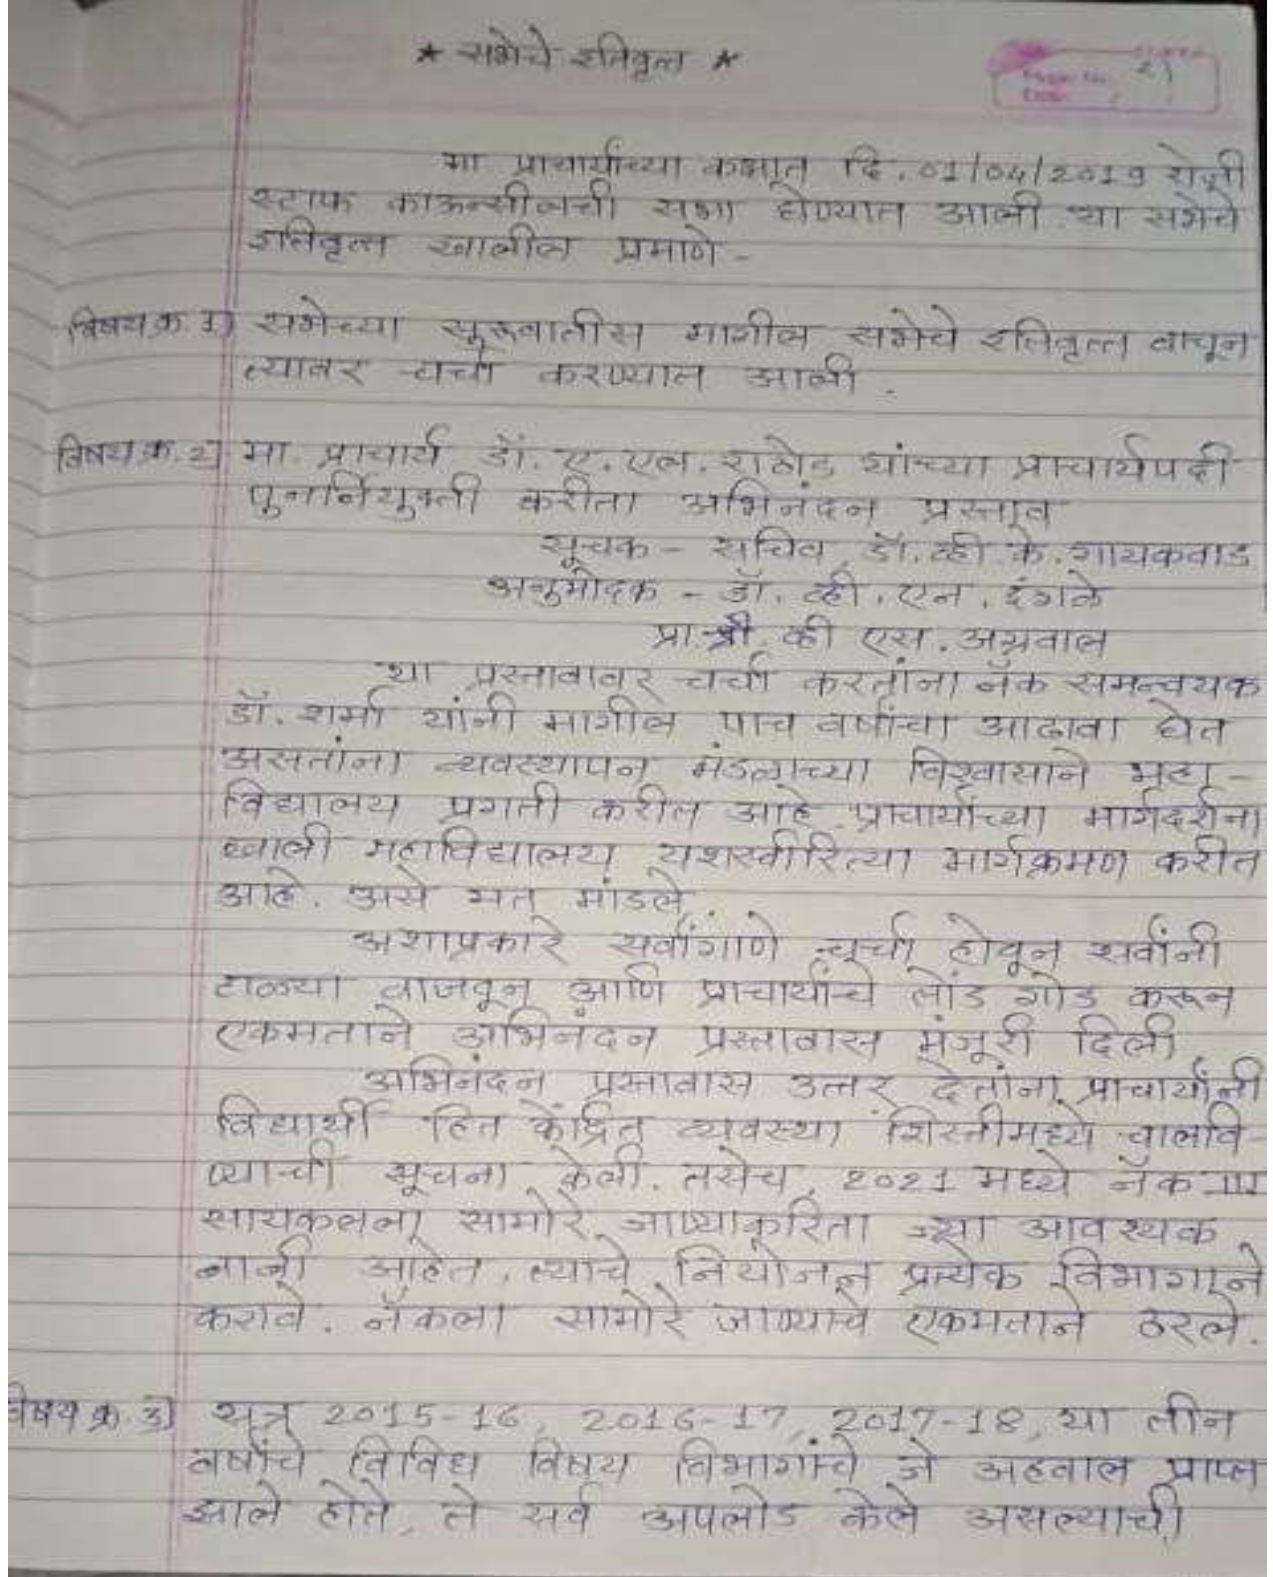 ★ सभेचे इतिवृत्त ★
Page No. 21
Date
मा प्राचार्यांच्या कक्षात दि. 01/04/2019 रोजी
स्टाफ काऊन्सीलची सभा घेण्यात आली या सभेचे
इतिवृत्त खालील प्रमाणे -
विषय क्र. 1) सभेच्या सुरूवातीस मागील सभेचे इतिवृत्त वाचून
त्यावर चर्चा करण्यात आली.
विषय क्र. 2) मा. प्राचार्य डॉ. ए. एल. राठोड यांच्या प्राचार्यपदी
पुनर्नियुक्ती करीता अभिनंदन प्रस्ताव
सूचक - सचिव, डॉ. व्ही. के. गायकवाड
अनुमोदक - डॉ. व्ही. एन. इंगळे
प्रा. श्री. व्ही एस. अग्रवाल
या प्रस्तावावर चर्चा करतांना नॅक समन्वयक
डॉ. शर्मा यांनी मागील पाच वर्षांचा आढावा घेत
असतांना व्यवस्थापन मंडळाच्या विश्वासाने महा-
विद्यालय प्रगती करीत आहे. प्राचार्यांच्या मार्गदर्शना
खाली महाविद्यालय यशस्वीरित्या मार्गक्रमण करीत
आहे. असे मत मांडले.
अशाप्रकारे सर्वांगाणे चर्चा होवून सर्वांनी
टाळ्या वाजवून आणि प्राचार्यांचे तोंड गोड करून
एकमताने अभिनंदन प्रस्तावास मंजूरी दिली
अभिनंदन प्रस्तावास उत्तर देतांना प्राचार्यांनी
विद्यार्थी हित केंद्रित व्यवस्था शिस्तीमध्ये चालवि-
ण्याची सूचना केली. तसेच, 2021 मध्ये नॅक III
सायकलला सामोरे जाण्याकरिता ज्या आवश्यक
बाबी आहेत, त्याचे नियोजन प्रत्येक विभागाने
करावे. नॅकला सामोरे जाण्याचे एकमताने ठरले.
विषय क्र. 3) सत्र 2015-16, 2016-17, 2017-18, या तीन
वर्षांचे विविध विषय विभागांचे जे अहवाल प्राप्त
झाले होते, ते सर्व अपलोड केले असल्याची